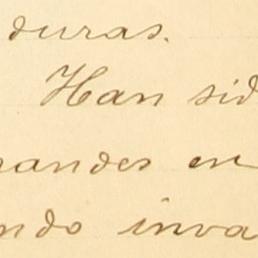 duras.
Han sid
randes en
ndo inva